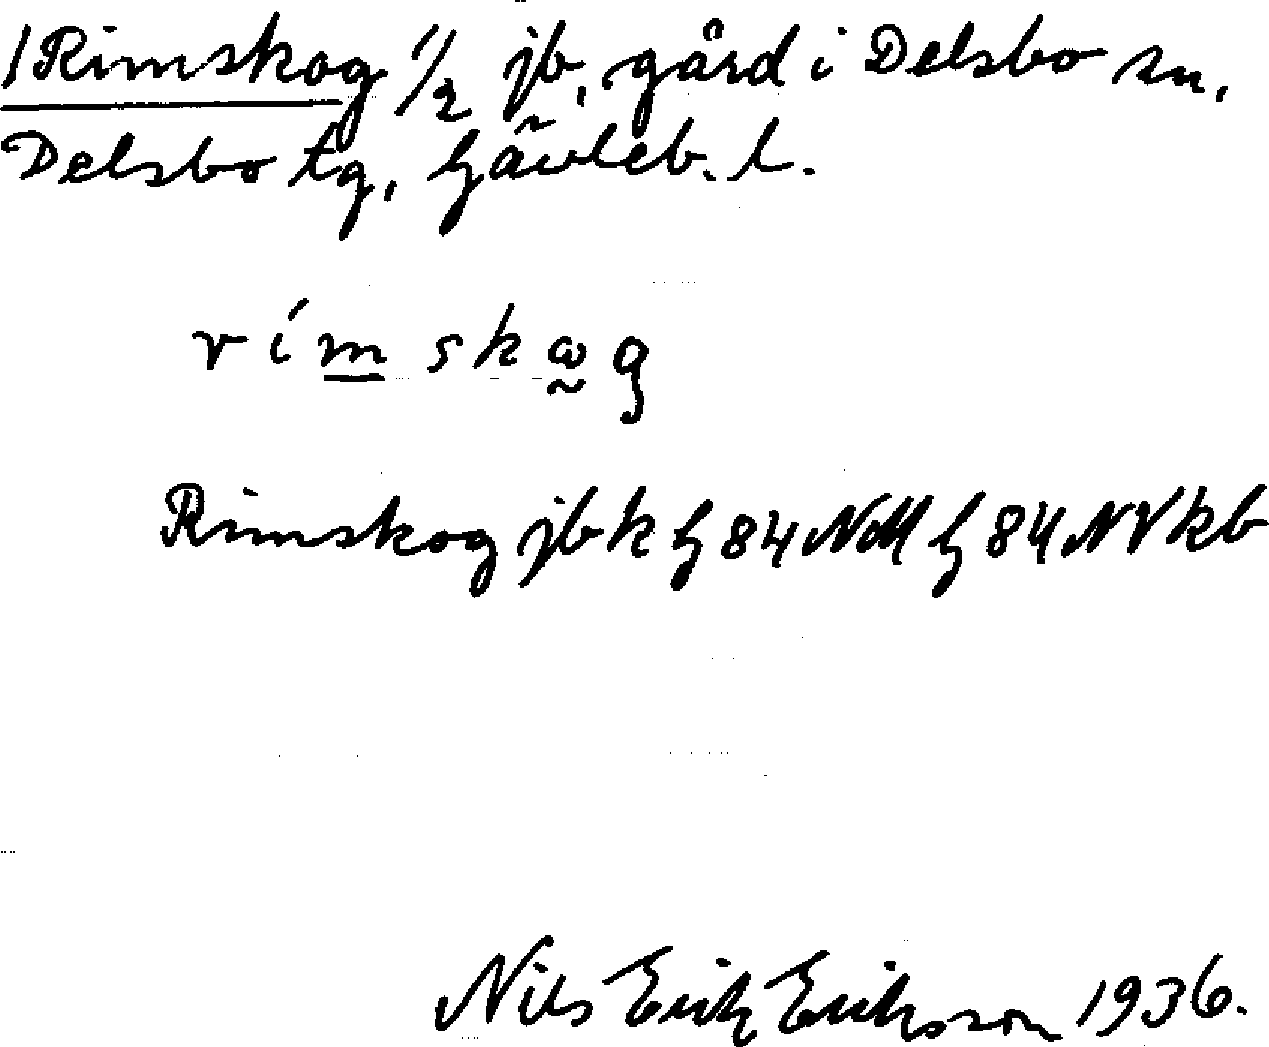 /Rimskog 1/2 jb, gård i Delsbo sn,
Delsbo tg, Gävleb. l.
rímskω̰g
Rimskog jbk G 84 NM G 84 NV kb
Nils Erik Eriksson 1936.